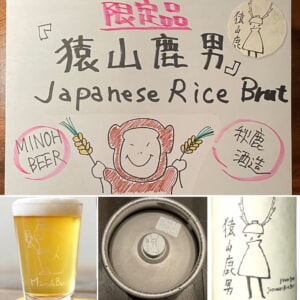 限定品
『猿山鹿男』
Japanese Rice Brut
猿山鹿
MINOH
BEER
秋鹿
酒造
猿山鹿男